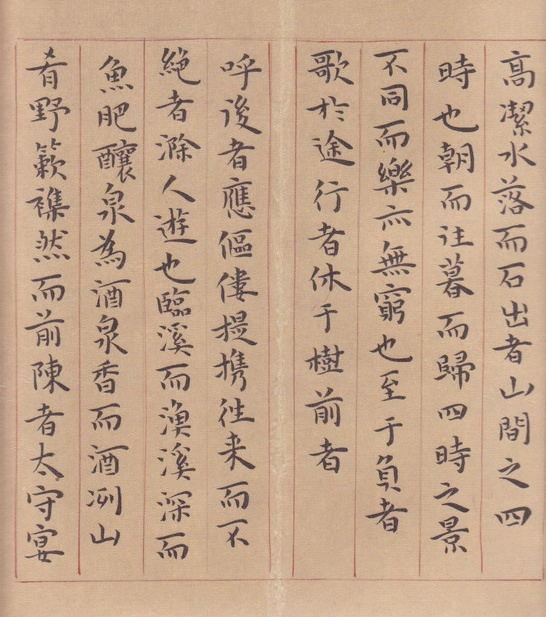 高潔水落而石出者山間之四
時也朝而往暮而歸四時之景
不同而樂亦無窮也至于負者
歌於途行者休于樹前者
呼後者應傴僂提携往来而不
絶者滁人遊也臨溪而漁溪深而
魚肥釀泉為酒泉香而酒冽山
肴野簌襍然而前陳者太守宴